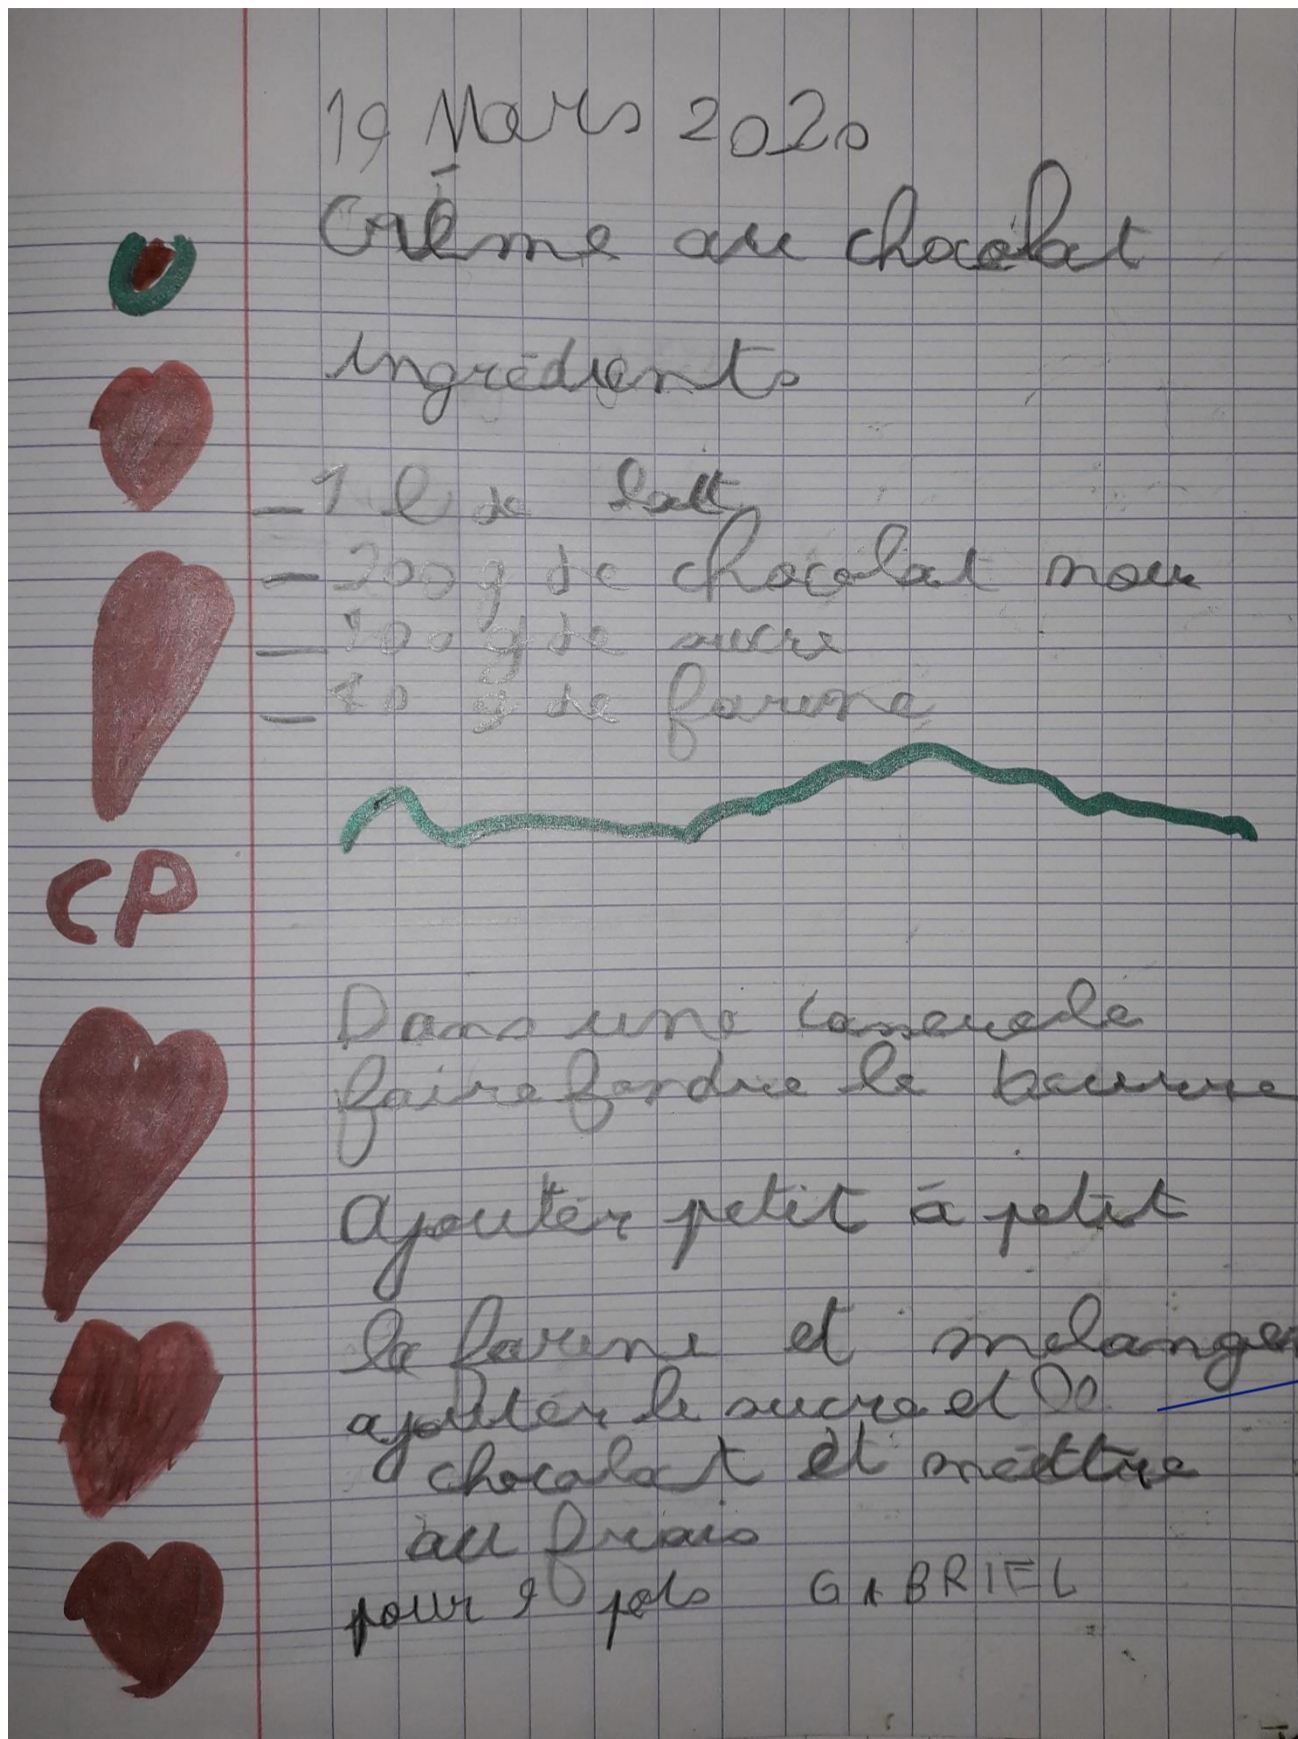 19 Mars 2020
Crème au chocolat
ingrédients
- 1 l de lait
- 200 g de chocolat noir
- 100 g de sucre
- 10 g de farine
CP
Dans une
faire fondre le beurre
Ajouter petit à petit
la farine et mélanger
ajouter le sucre et le
chocolat et mettre
au frais
pour 9 pots GABRIEL